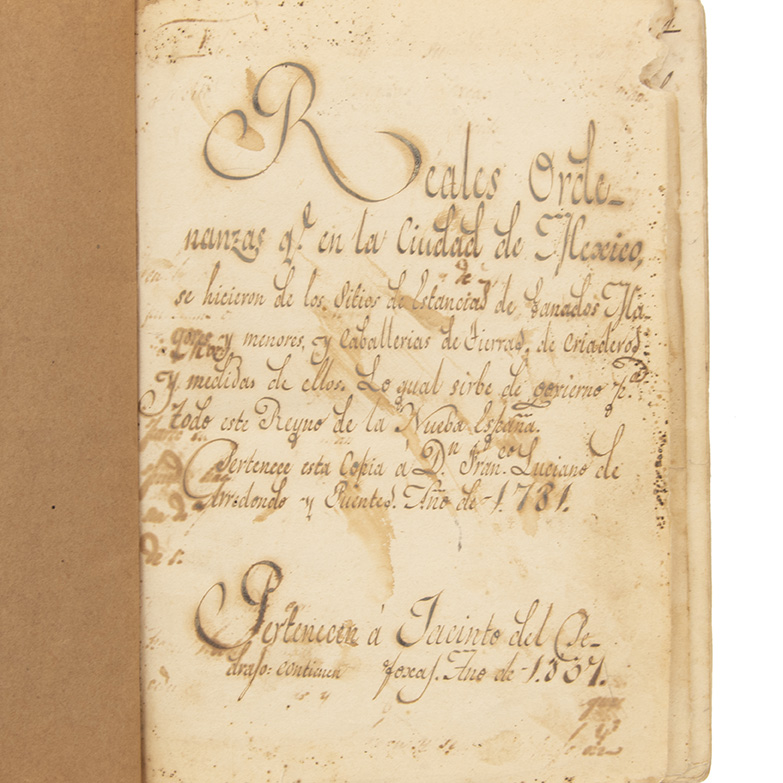 Reales Orde-
nanzas q.e en la Ciudad de Mexico,
se hicieron de los Sitios de Estancias de Ganados Ma-
yores, y menores, y Caballerias de Tierras, de Criaderos
y medidas de ellos. Lo qual sirbe de govierno p.a
todo este Reyno de la Nueba España.
Pertenece esta Copia a D.n Fran.co Luciano de
Arredondo y Puentes. Año de 1781.
Pertenecen á Jacinto del Pe-
draso: contienen foxas. Año de 1807.